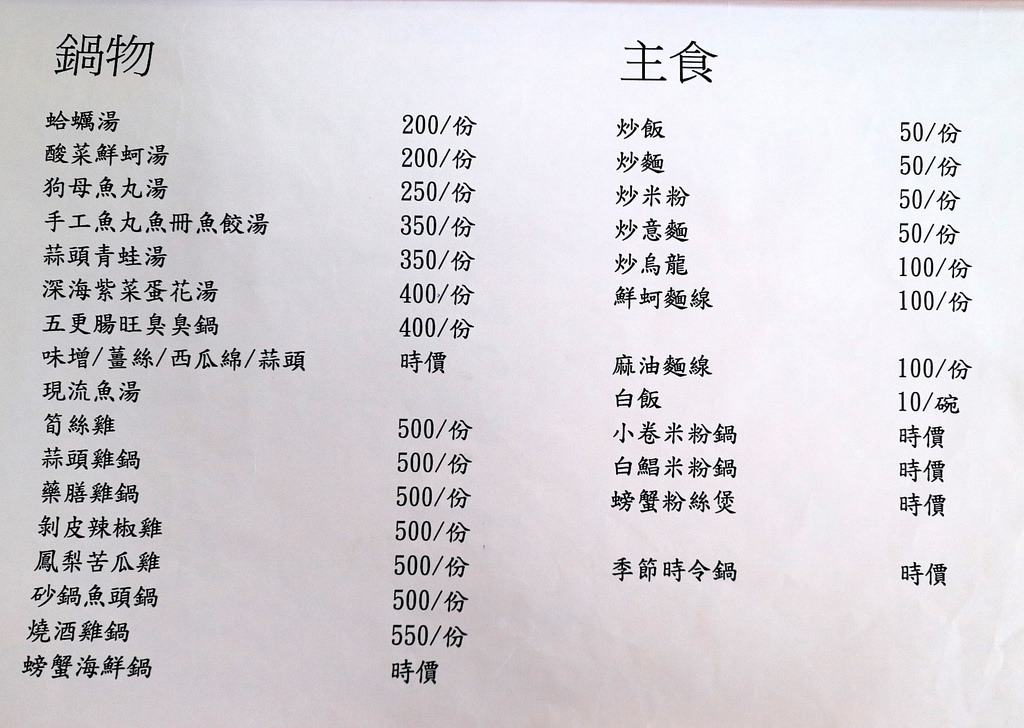 鍋物
蛤蠣湯 200/份
酸菜鮮蚵湯 200/份
狗母魚丸湯 250/份
手工魚丸魚冊魚餃湯 350/份
蒜頭青蛙湯 350/份
深海紫菜蛋花湯 400/份
五更腸旺臭臭鍋 400/份
味增/薑絲/西瓜綿/蒜頭 時價
現流魚湯
筍絲雞 500/份
蒜頭雞鍋 500/份
藥膳雞鍋 500/份
剝皮辣椒雞 500/份
鳳梨苦瓜雞 500/份
砂鍋魚頭鍋 500/份
燒酒雞鍋 550/份
螃蟹海鮮鍋 時價
主食
炒飯 50/份
炒麵 50/份
炒米粉 50/份
炒意麵 50/份
炒烏龍 100/份
鮮蚵麵線 100/份
麻油麵線 100/份
白飯 10/碗
小卷米粉鍋 時價
白鯧米粉鍋 時價
螃蟹粉絲煲 時價
季節時令鍋 時價